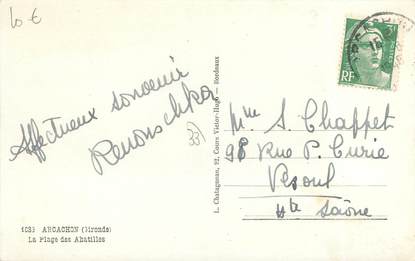 10 €
Affectueux souvenir
Renouschka
33
1033 ARCACHON (Gironde)
La Plage des Abatilles
L. Chatagneau, 22, Cours Victor-Hugo - Bordeaux
RF
Mme S. Chappet
98 Rue P. Curie
Vesoul
Hte Saône